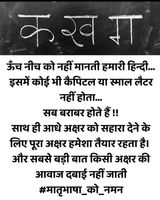 क ख ग
ऊँच नीच को नहीं मानती हमारी हिन्दी...
इसमें कोई भी कैपिटल या स्माल लैटर
नहीं होता...
सब बराबर होते हैं !!
साथ ही आधे अक्षर को सहारा देने के
लिए पूरा अक्षर हमेशा तैयार रहता है।
और सबसे बड़ी बात किसी अक्षर की
आवाज दबाई नहीं जाती
#मातृभाषा_को_नमन